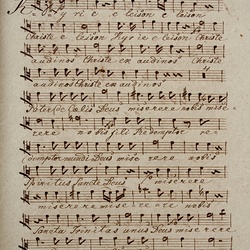 Kyrie eleison eleison
Christe eleison Kyrie eleison Christe
audi nos Christe exaudi nos
audi nos Christe exaudi nos
Pater de Cælis Deus miserere nobis mise
rere nobis fili Redemptor re
demptor mundi Deus miserere nobis
Trinitus Sancte Deus miserere
miserere miserere nobis
Sancta Trinitas unus Deus miserere